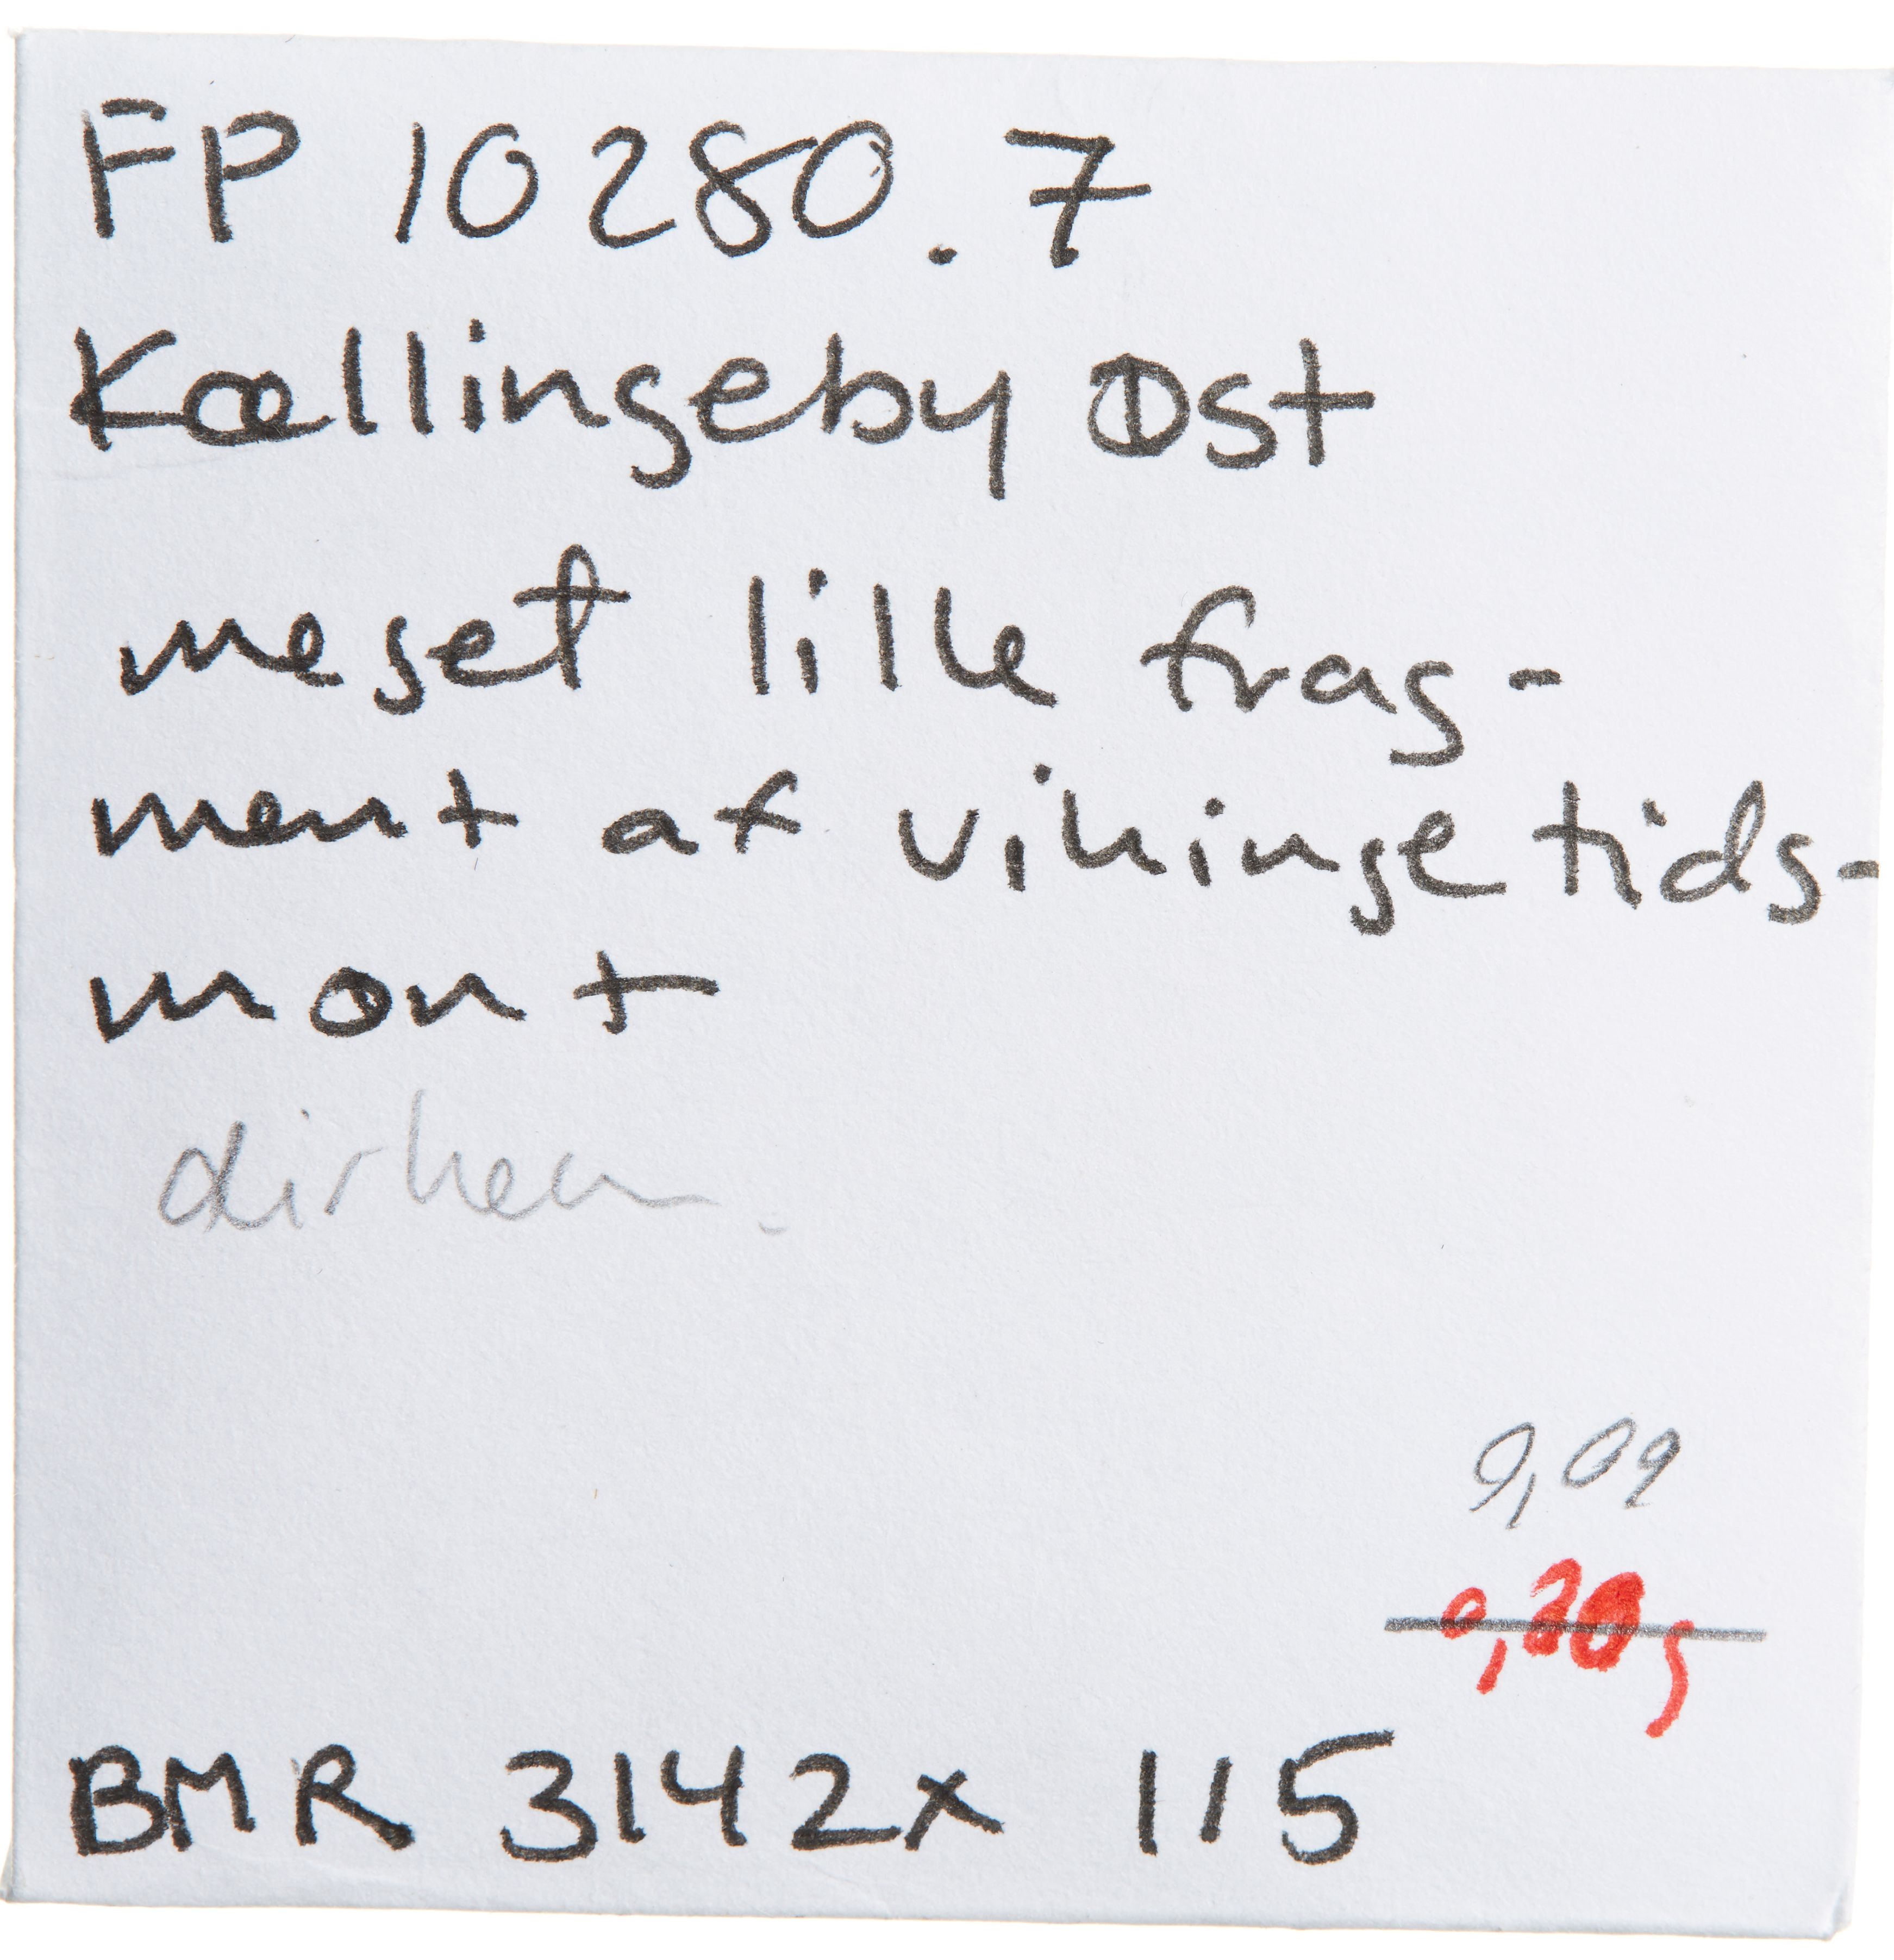 FP 10280.7
Kællingeby Øst
meget lille frag-
ment af vikingetids-
mønt
dirhem.
0,09
0,20g
BMR 3142x 115